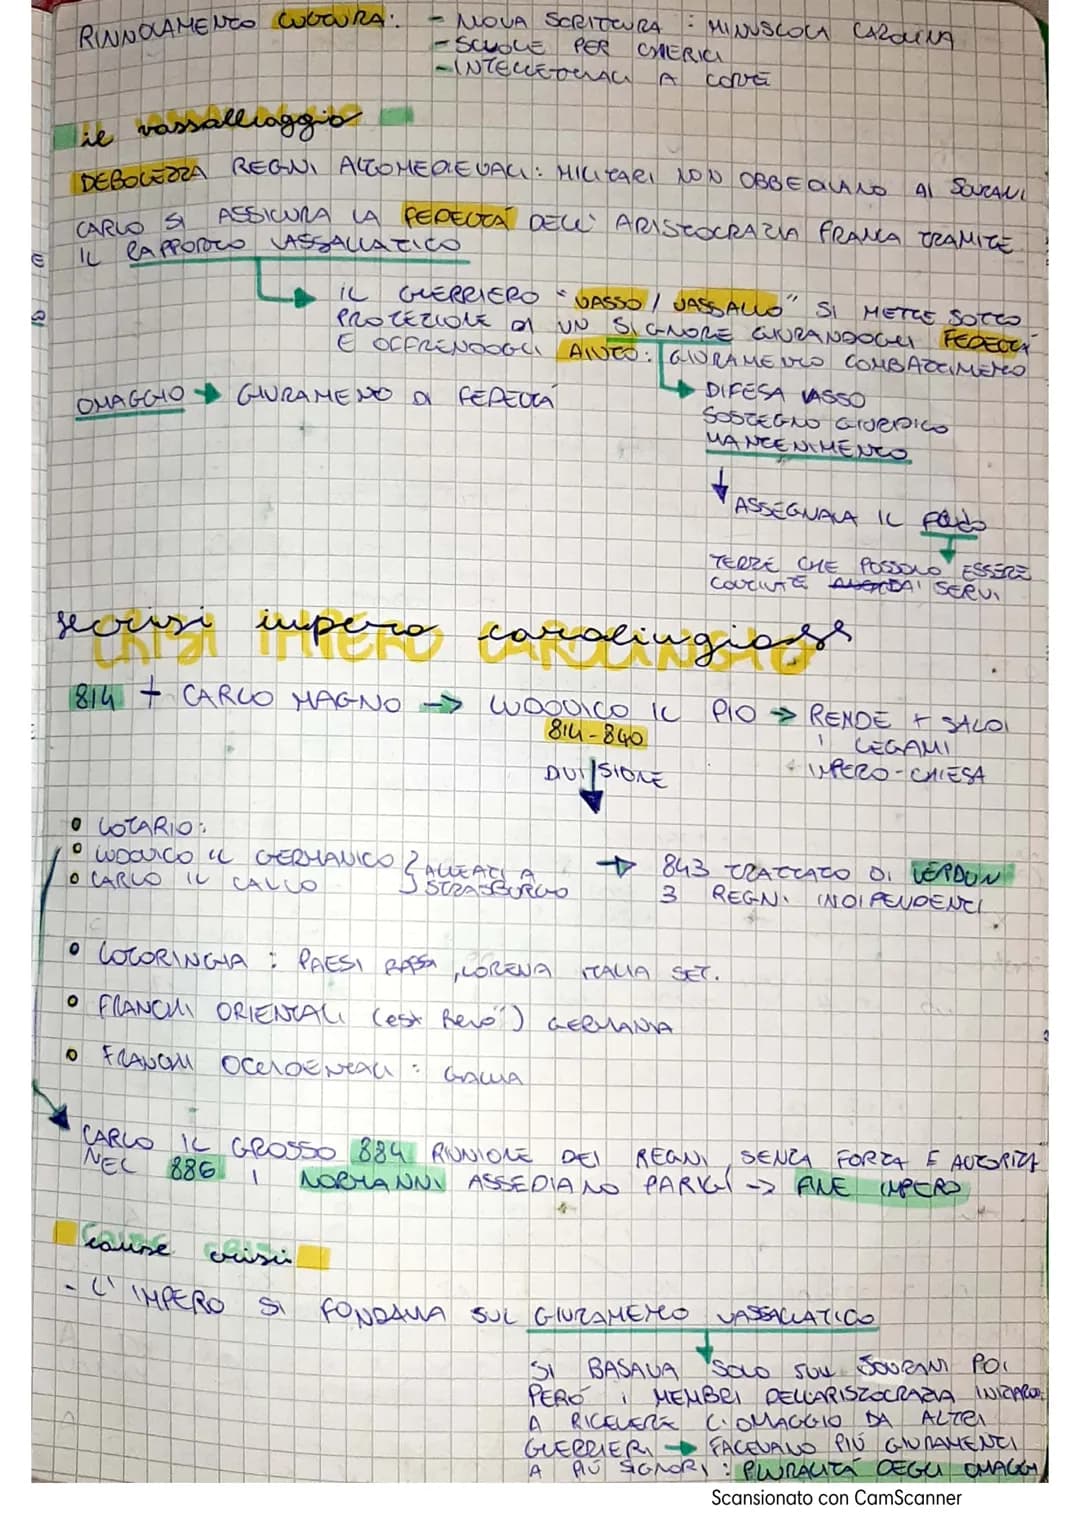 RINNOVAMENTO CULTURA: - NUOVA SCRITTURA : MINUSCOLA CAROLINA
- SCUOLE PER CHIERICI
- INTELLETTUALI A CORTE
il vassallaggio
DEBOLEZZA REGNI ALTOMEDIEVALI: MILITARI NON OBBEDIVANO AI SOVRANI
CARLO SI ASSICURA LA FEDELTÀ DELL' ARISTOCRAZIA FRANCA TRAMITE
IL RAPPORTO VASSALLATICO
IL GUERRIERO "VASSO / VASSALLO" SI METTE SOTTO
PROTEZIONE DI UN SIGNORE GIURANDOGLI FEDELTÀ
E OFFRENDOGLI AIUTO: GIURAMENTO COMBATTIMENTO
OMAGGIO → GIURAMENO DI FEDELTÀ
DIFESA VASSO
SOSTEGNO GIURIDICO
MANTENIMENTO
↓ ASSEGNAVA IL feudo
TERRE CHE POSSONO ESSERE
COLTIVATE DAI SERVI
crisi impero carolingio
CRISI IMPERO CAROLINGIO
814 † CARLO MAGNO → LUDOVICO IL PIO → RENDE + SALDI
814-840 I LEGAMI
DIVISIONE IMPERO-CHIESA
• LOTARIO:
• LUDOVICO IL GERMANICO } ALLEATI A → 843 TRATTATO DI VERDUN
• CARLO IL CALVO STRASBURGO 3 REGNI INDIPENDENTI
• LOTORINGIA : PAESI BASSI, LORENA ITALIA SET.
• FRANCHI ORIENTALI (est Reno") GERMANIA
• FRANCHI OCCIDENTALI : GALLIA
CARLO IL GROSSO 884 RIUNIONE DEI REGNI, SENZA FORZA E AUTORITÀ
NEL 886 I NORMANNI ASSEDIANO PARIGI → FINE IMPERO
cause crisi
- L' IMPERO SI FONDAVA SUL GIURAMENTO VASSALLATICO
SI BASAVA SOLO SUI SOVRANI POI
PERÒ I MEMBRI DELL'ARISTOCRAZIA INIZIARO.
A RICEVERE L'OMAGGIO DA ALTRI
GUERRIERI → FACEVANO PIÚ GIURAMENTI
A PIÚ SIGNORI : PLURALITÀ DEGLI OMAGGI
Scansionato con CamScanner